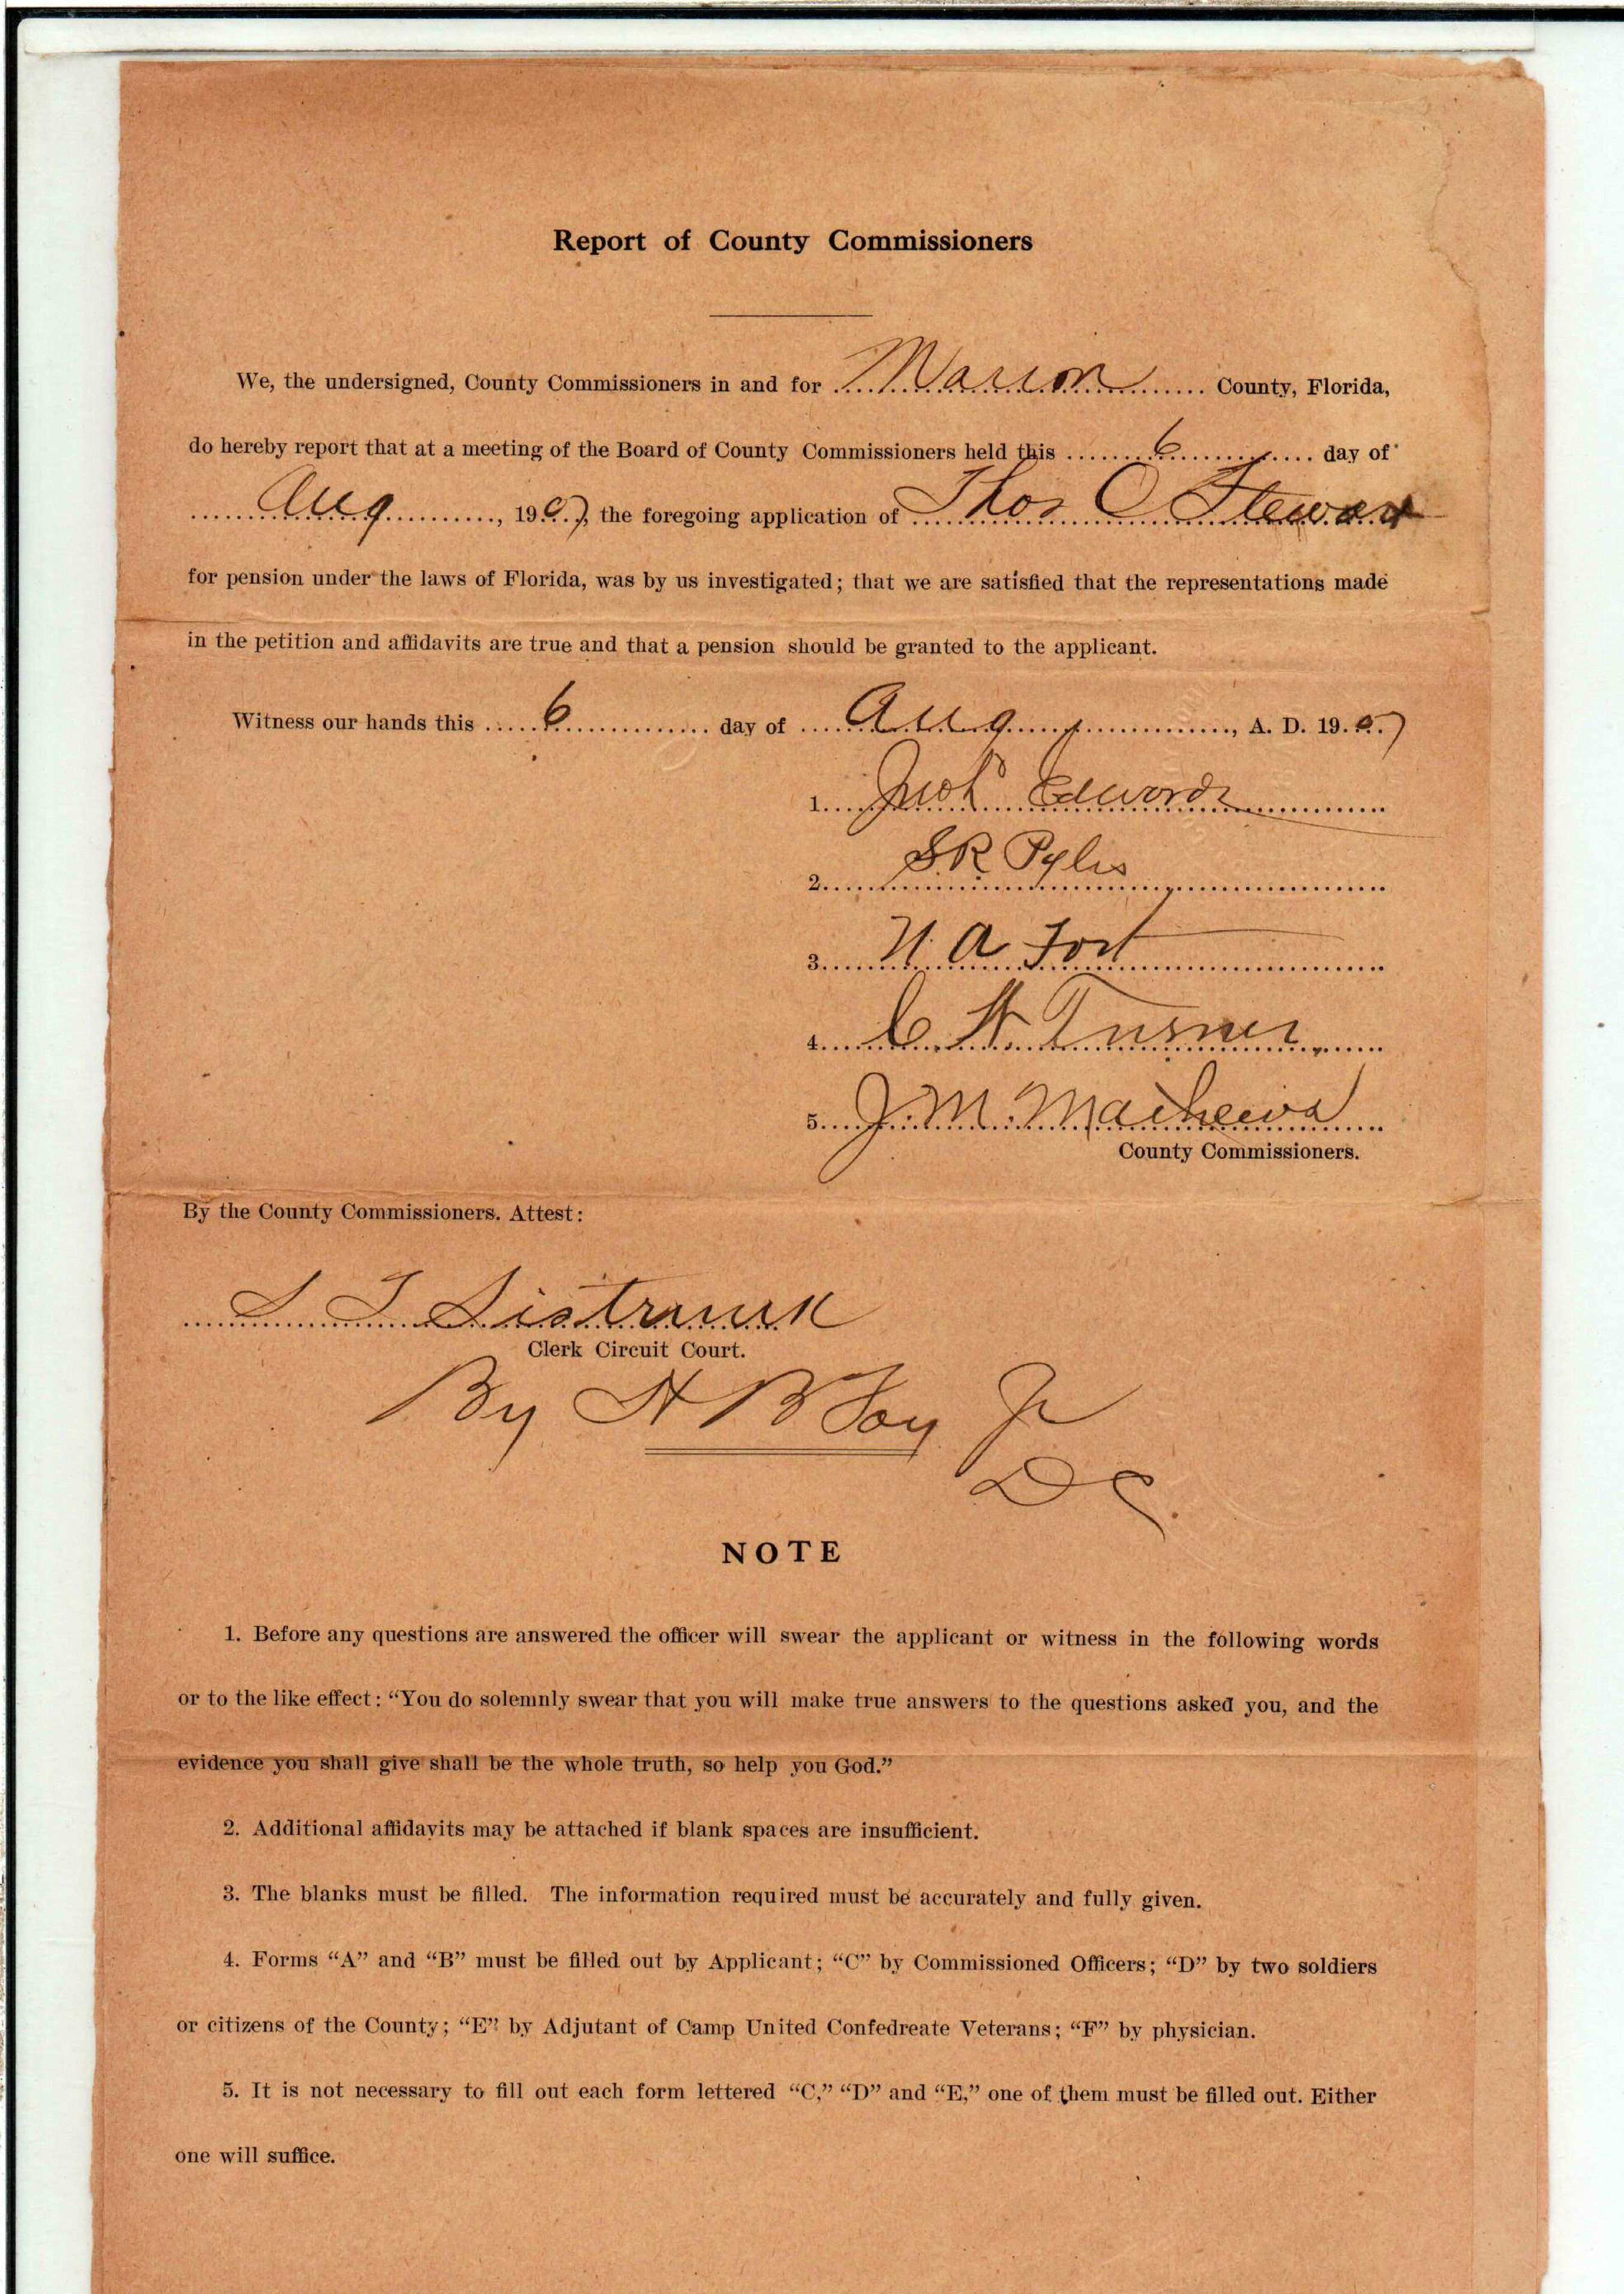 Report of County Commissioners
We, the undersigned, County Commissioners in and for Marion County, Florida,
do hereby report that at a meeting of the Board of County Commissioners held this 6 day of
Aug, 1907, the foregoing application of Thos O Stewart
for pension under the laws of Florida, was by us investigated; that we are satisfied that the representations made
in the petition and affidavits are true and that a pension should be granted to the applicant.
Witness our hands this 6 day of Aug, A. D. 1907
1. Edwards
2. S R Pyles
3. N. A Fort
4. C. H. Turner
5. J. M. Mathews
County Commissioners.
By the County Commissioners. Attest:
S T Sistrunk
Clerk Circuit Court.
By H B Foy Jr
DC.
NOTE
1. Before any questions are answered the officer will swear the applicant or witness in the following words
or to the like effect: “You do solemnly swear that you will make true answers to the questions asked you, and the
evidence you shall give shall be the whole truth, so help you God.”
2. Additional affidavits may be attached if blank spaces are insufficient.
3. The blanks must be filled. The information required must be accurately and fully given.
4. Forms “A” and “B” must be filled out by Applicant; “C” by Commissioned Officers; “D” by two soldiers
or citizens of the County; “E” by Adjutant of Camp United Confedreate Veterans; “F” by physician.
5. It is not necessary to fill out each form lettered “C,” “D” and “E,” one of them must be filled out. Either
one will suffice.